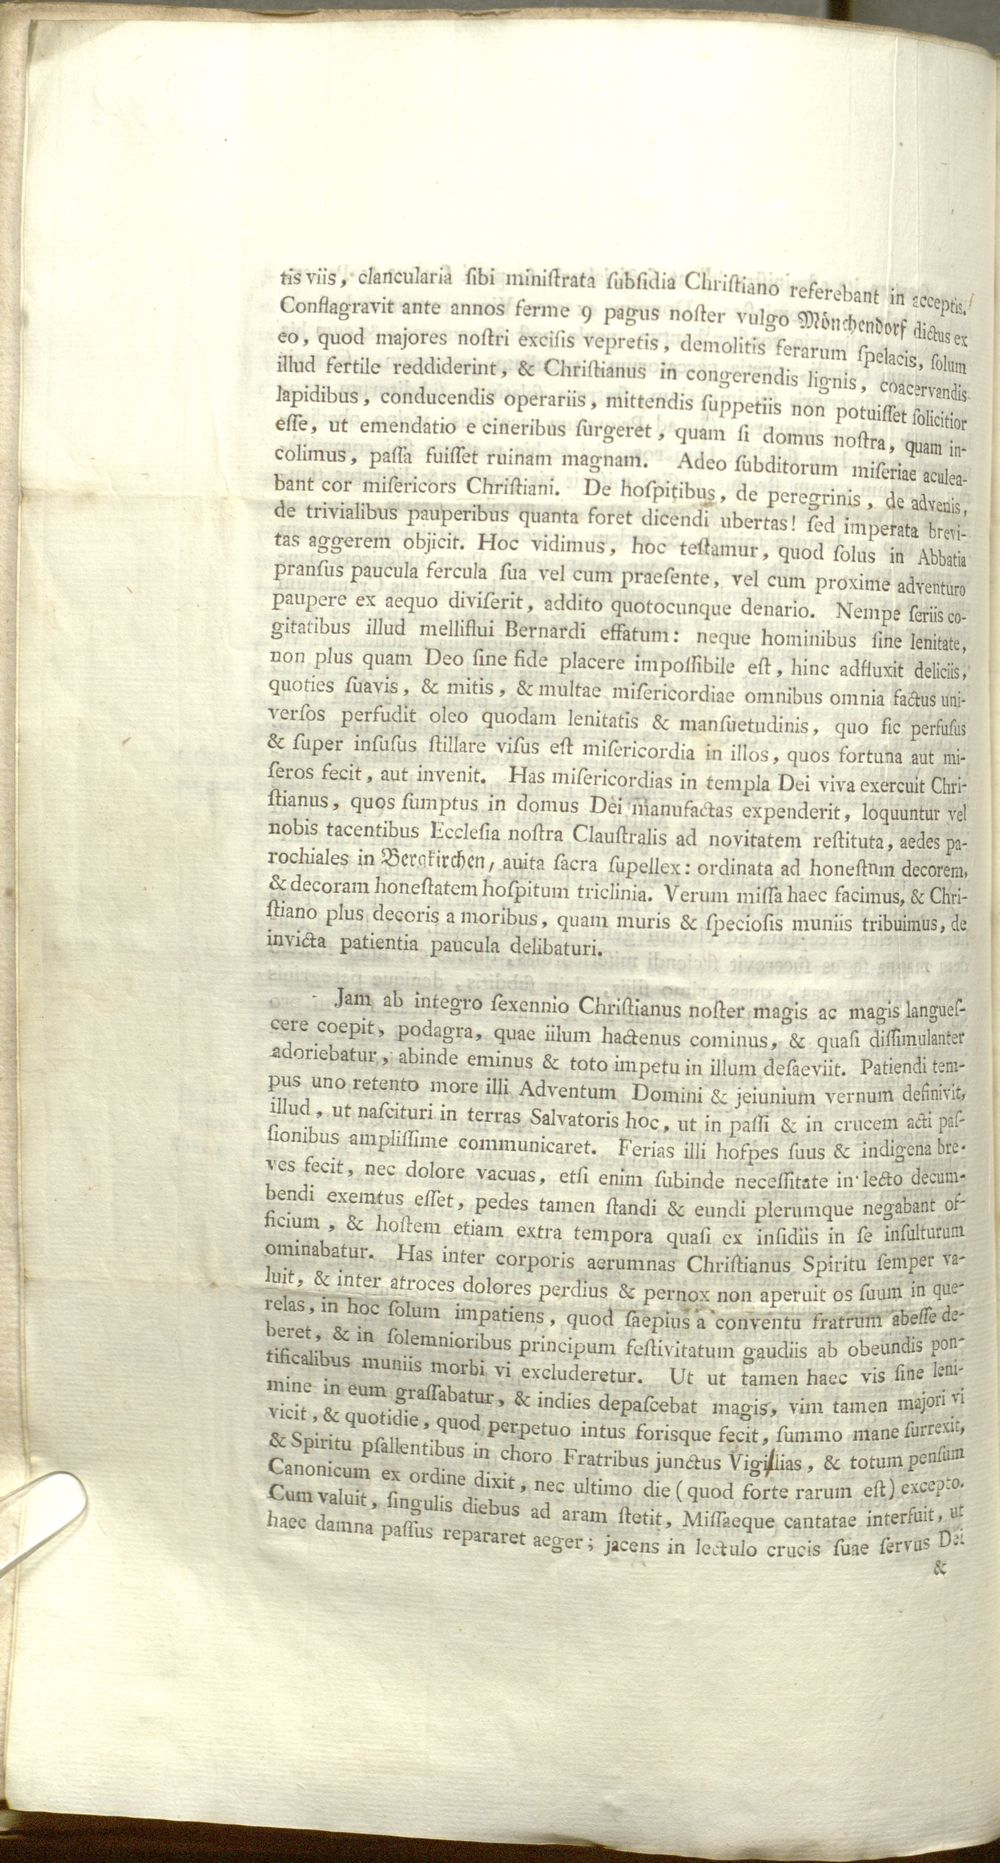 tis viis, clancularia ſibi miniſtrata ſubſidia Chriſtiano referebant in acceptis.
Conflagravit ante annos ferme 9 pagus noſter vulgo Mönchendorf dictus ex
eo, quod majores noſtri exciſis vepretis, demolitis ferarum ſpelacis, ſolum
illud fertile reddiderint, & Chriſtianus in congerendis lignis, coacervandis
lapidibus, conducendis operariis, mittendis ſuppetiis non potuiſſet ſolicitior
eſſe, ut emendatio e cineribus ſurgeret, quam ſi domus noſtra, quam in-
colimus, paſſa fuiſſet ruinam magnam. Adeo ſubditorum miſeriae aculea-
bant cor miſericors Chriſtiani. De hoſpitibus, de peregrinis, de advenis,
de trivialibus pauperibus quanta foret dicendi ubertas! ſed imperata brevi-
tas aggerem objicit. Hoc vidimus, hoc teſtamur, quod ſolus in Abbatia
pranſus paucula fercula ſua vel cum praeſente, vel cum proxime adventuro
paupere ex aequo diviſerit, addito quotocunque denario. Nempe ſeriis co-
gitatibus illud melliflui Bernardi effatum: neque hominibus ſine lenitate,
non plus quam Deo ſine fide placere impoſſibile eſt, hinc adfluxit deliciis,
quoties ſuavis, & mitis, & multae miſericordiae omnibus omnia factus uni-
verſos perfudit oleo quodam lenitatis & manſuetudinis, quo ſic perfuſus
& ſuper infuſus ſtillare viſus eſt miſericordia in illos, quos fortuna aut mi-
ſeros fecit, aut invenit. Has miſericordias in templa Dei viva exercuit Chri-
ſtianus, quos ſumptus in domus Dei manufactas expenderit, loquuntur vel
nobis tacentibus Eccleſia noſtra Clauſtralis ad novitatem reſtituta, aedes pa-
rochiales in Bergkirchen, avita ſacra ſupellex: ordinata ad honeſtum decorem,
& decoram honeſtatem hoſpitum triclinia. Verum miſſa haec facimus, & Chri-
ſtiano plus decoris a moribus, quam muris & ſpecioſis muniis tribuimus, de
invicta patientia paucula delibaturi.
Jam ab integro ſexennio Chriſtianus noſter magis ac magis langueſ-
cere coepit, podagra, quae illum hactenus cominus, & quaſi diſſimulanter
adoriebatur, abinde eminus & toto impetu in illum deſaeviit. Patiendi tem-
pus uno retento more illi Adventum Domini & jejunium vernum definivit,
illud, ut naſcituri in terras Salvatoris hoc, ut in paſſi & in crucem acti paſ-
ſionibus ampliſſime communicaret. Ferias illi hoſpes ſuus & indigena bre-
ves fecit, nec dolore vacuas, etſi enim ſubinde neceſſitate in lecto decum-
bendi exemtus eſſet, pedes tamen ſtandi & eundi plerumque negabant of-
ficium, & hoſtem etiam extra tempora quaſi ex inſidiis in ſe inſulturum
ominabatur. Has inter corporis aerumnas Chriſtianus Spiritu ſemper va-
luit, & inter atroces dolores perdius & pernox non aperuit os ſuum in que-
relas, in hoc ſolum impatiens, quod ſaepius a conventu fratrum abeſſe de-
beret, & in ſolemnioribus principum feſtivitatum gaudiis ab obeundis pon-
tificalibus muniis morbi vi excluderetur. Ut ut tamen haec vis ſine leni-
mine in eum graſſabatur, & indies depaſcebat magis, vim tamen majori vi
vicit, & quotidie, quod perpetuo intus forisque fecit, ſummo mane ſurrexit,
& Spiritu pſallentibus in choro Fratribus junctus Vigilias, & totum penſum
Canonicum ex ordine dixit, nec ultimo die (quod forte rarum eſt) excepto.
Cum valuit, ſingulis diebus ad aram ſtetit, Miſſaeque cantatae interfuit, ut
haec damna paſſus repararet aeger; jacens in lectulo crucis ſuae ſervus Dei
&